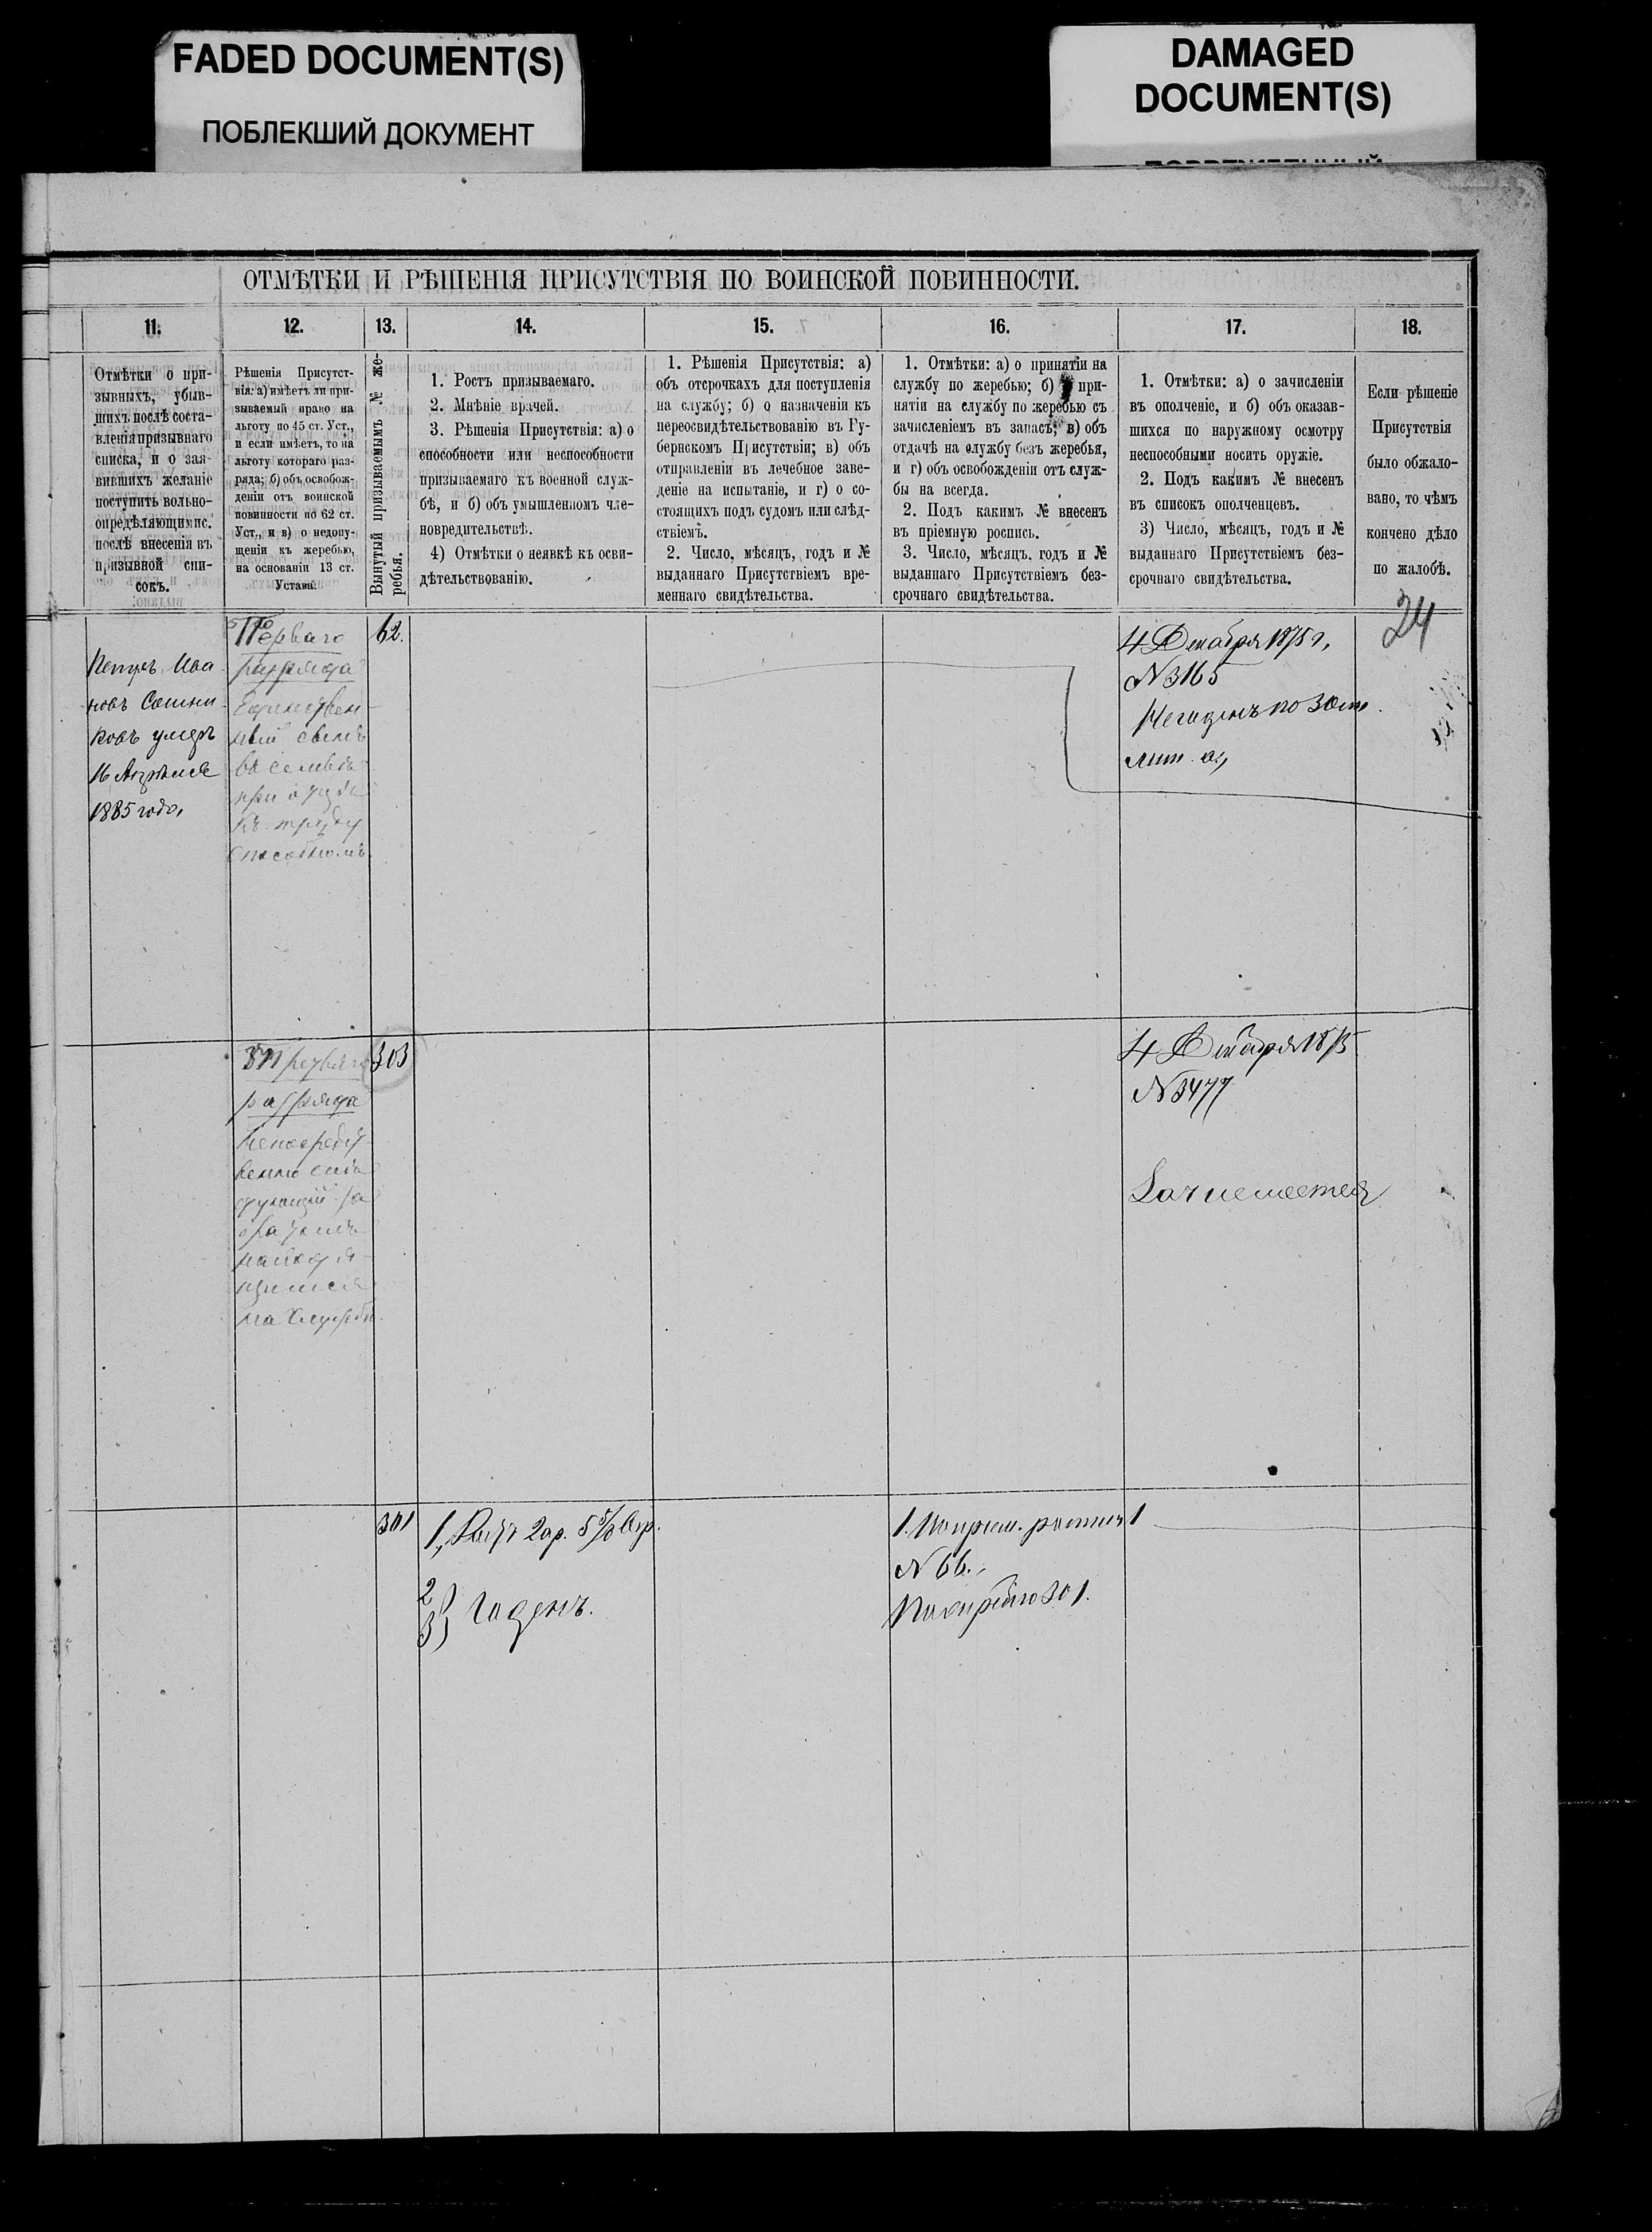 FADED DOCUMENT(S)
ПОБЛЕКШИЙ ДОКУМЕНТ
DAMAGED
DOCUMENT(S)
ОТМѢТКИ И РѢШЕНІЯ ПРИСУТСТВІЯ ПО ВОИНСКОЙ ПОВИННОСТИ.
11.
Отмѣтки о при-
зывныхъ, убыв-
шихъ послѣ соста-
вленія призывнаго
списка, и о зая-
вившихъ желаніе
поступить вольно-
опредѣляющимис.
послѣ внесенія въ
призывной спи-
сокъ.
12.
Рѣшенія Присутст-
вія: а) имѣетъ ли при-
зываемый право на
льготу по 45 ст. Уст.,
и если имѣетъ, то на
льготу котораго раз-
ряда; б) объ освобож-
деніи отъ воинской
повинности по 62 ст.
Уст., и в) о недопу-
щеніи къ жеребью,
на основаніи 13 ст.
Устава.
13.
Вынутый призываемымъ № же-
ребья.
14.
1. Ростъ призываемаго.
2. Мнѣніе врачей.
3. Рѣшенія Присутствія: а) о
способности или неспособности
призываемаго къ военной служ-
бѣ, и б) объ умышленномъ чле-
новредительствѣ.
4) Отмѣтки о неявкѣ къ осви-
дѣтельствованію.
15.
1. Рѣшенія Присутствія: а)
объ отсрочкахъ для поступленія
на службу; б) о назначеніи къ
переосвидѣтельствованію въ Гу-
бернскомъ Присутствіи; в) объ
отправленіи въ лечебное заве-
деніе на испытаніе, и г) о со-
стоящихъ подъ судомъ или слѣд-
ствіемъ.
2. Число, мѣсяцъ, годъ и №
выданнаго Присутствіемъ вре-
меннаго свидѣтельства.
16.
1. Отмѣтки: а) о принятіи на
службу по жеребью; б) при-
нятіи на службу по жеребью съ
зачисленіемъ въ запасъ; в) объ
отдачѣ на службу безъ жеребья,
и г) объ освобожденіи отъ служ-
бы на всегда.
2. Подъ какимъ № внесенъ
въ пріемную роспись.
3. Число, мѣсяцъ, годъ и №
выданнаго Присутствіемъ без-
срочнаго свидѣтельства.
17.
1. Отмѣтки: а) о зачисленіи
въ ополченіе, и б) объ оказав-
шихся по наружному осмотру
неспособными носить оружіе.
2. Подъ какимъ № внесенъ
въ списокъ ополченцевъ.
3) Число, мѣсяцъ, годъ и №
выданнаго Присутствіемъ без-
срочнаго свидѣтельства.
18.
Если рѣшеніе
Присутствія
было обжало-
вано, то чѣмъ
кончено дѣло
по жалобѣ.
24
Петръ Ива
новъ
умеръ
16 Апрѣля
1885 года,
Перваго
разряда
Единствен-
ный сынъ
въ семьѣ
при отцѣ
къ труду
способномъ.
62.
4 Декабря 1875 г,
№ 3165
Негоденъ по
лит. а,
Третьяго
разряда
Непосредст-
венно слѣ
дующій за
братомъ
находя-
щимся
на службѣ.
303
4 Декабря 1875
№ 3477
301
1, Ростъ 2 ар. 5 5/8 вер.
2
3) Годенъ.
1. По прiем. росписи
№ 66.
По жеребью 301.
1